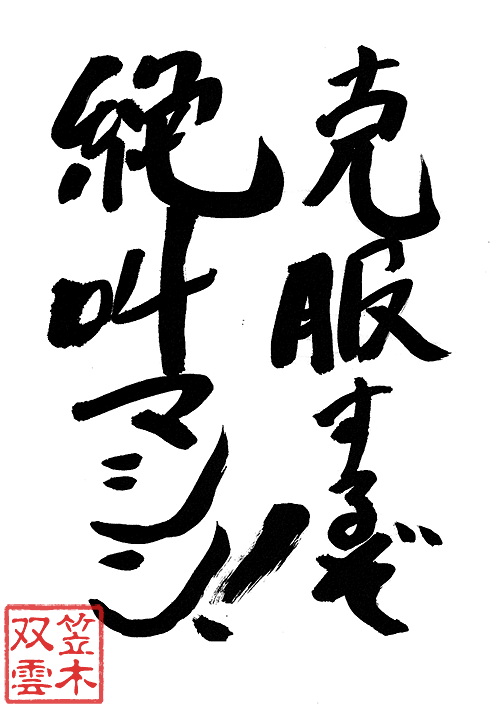 克服するぞ
絶叫マシン!!
笠木
双雲